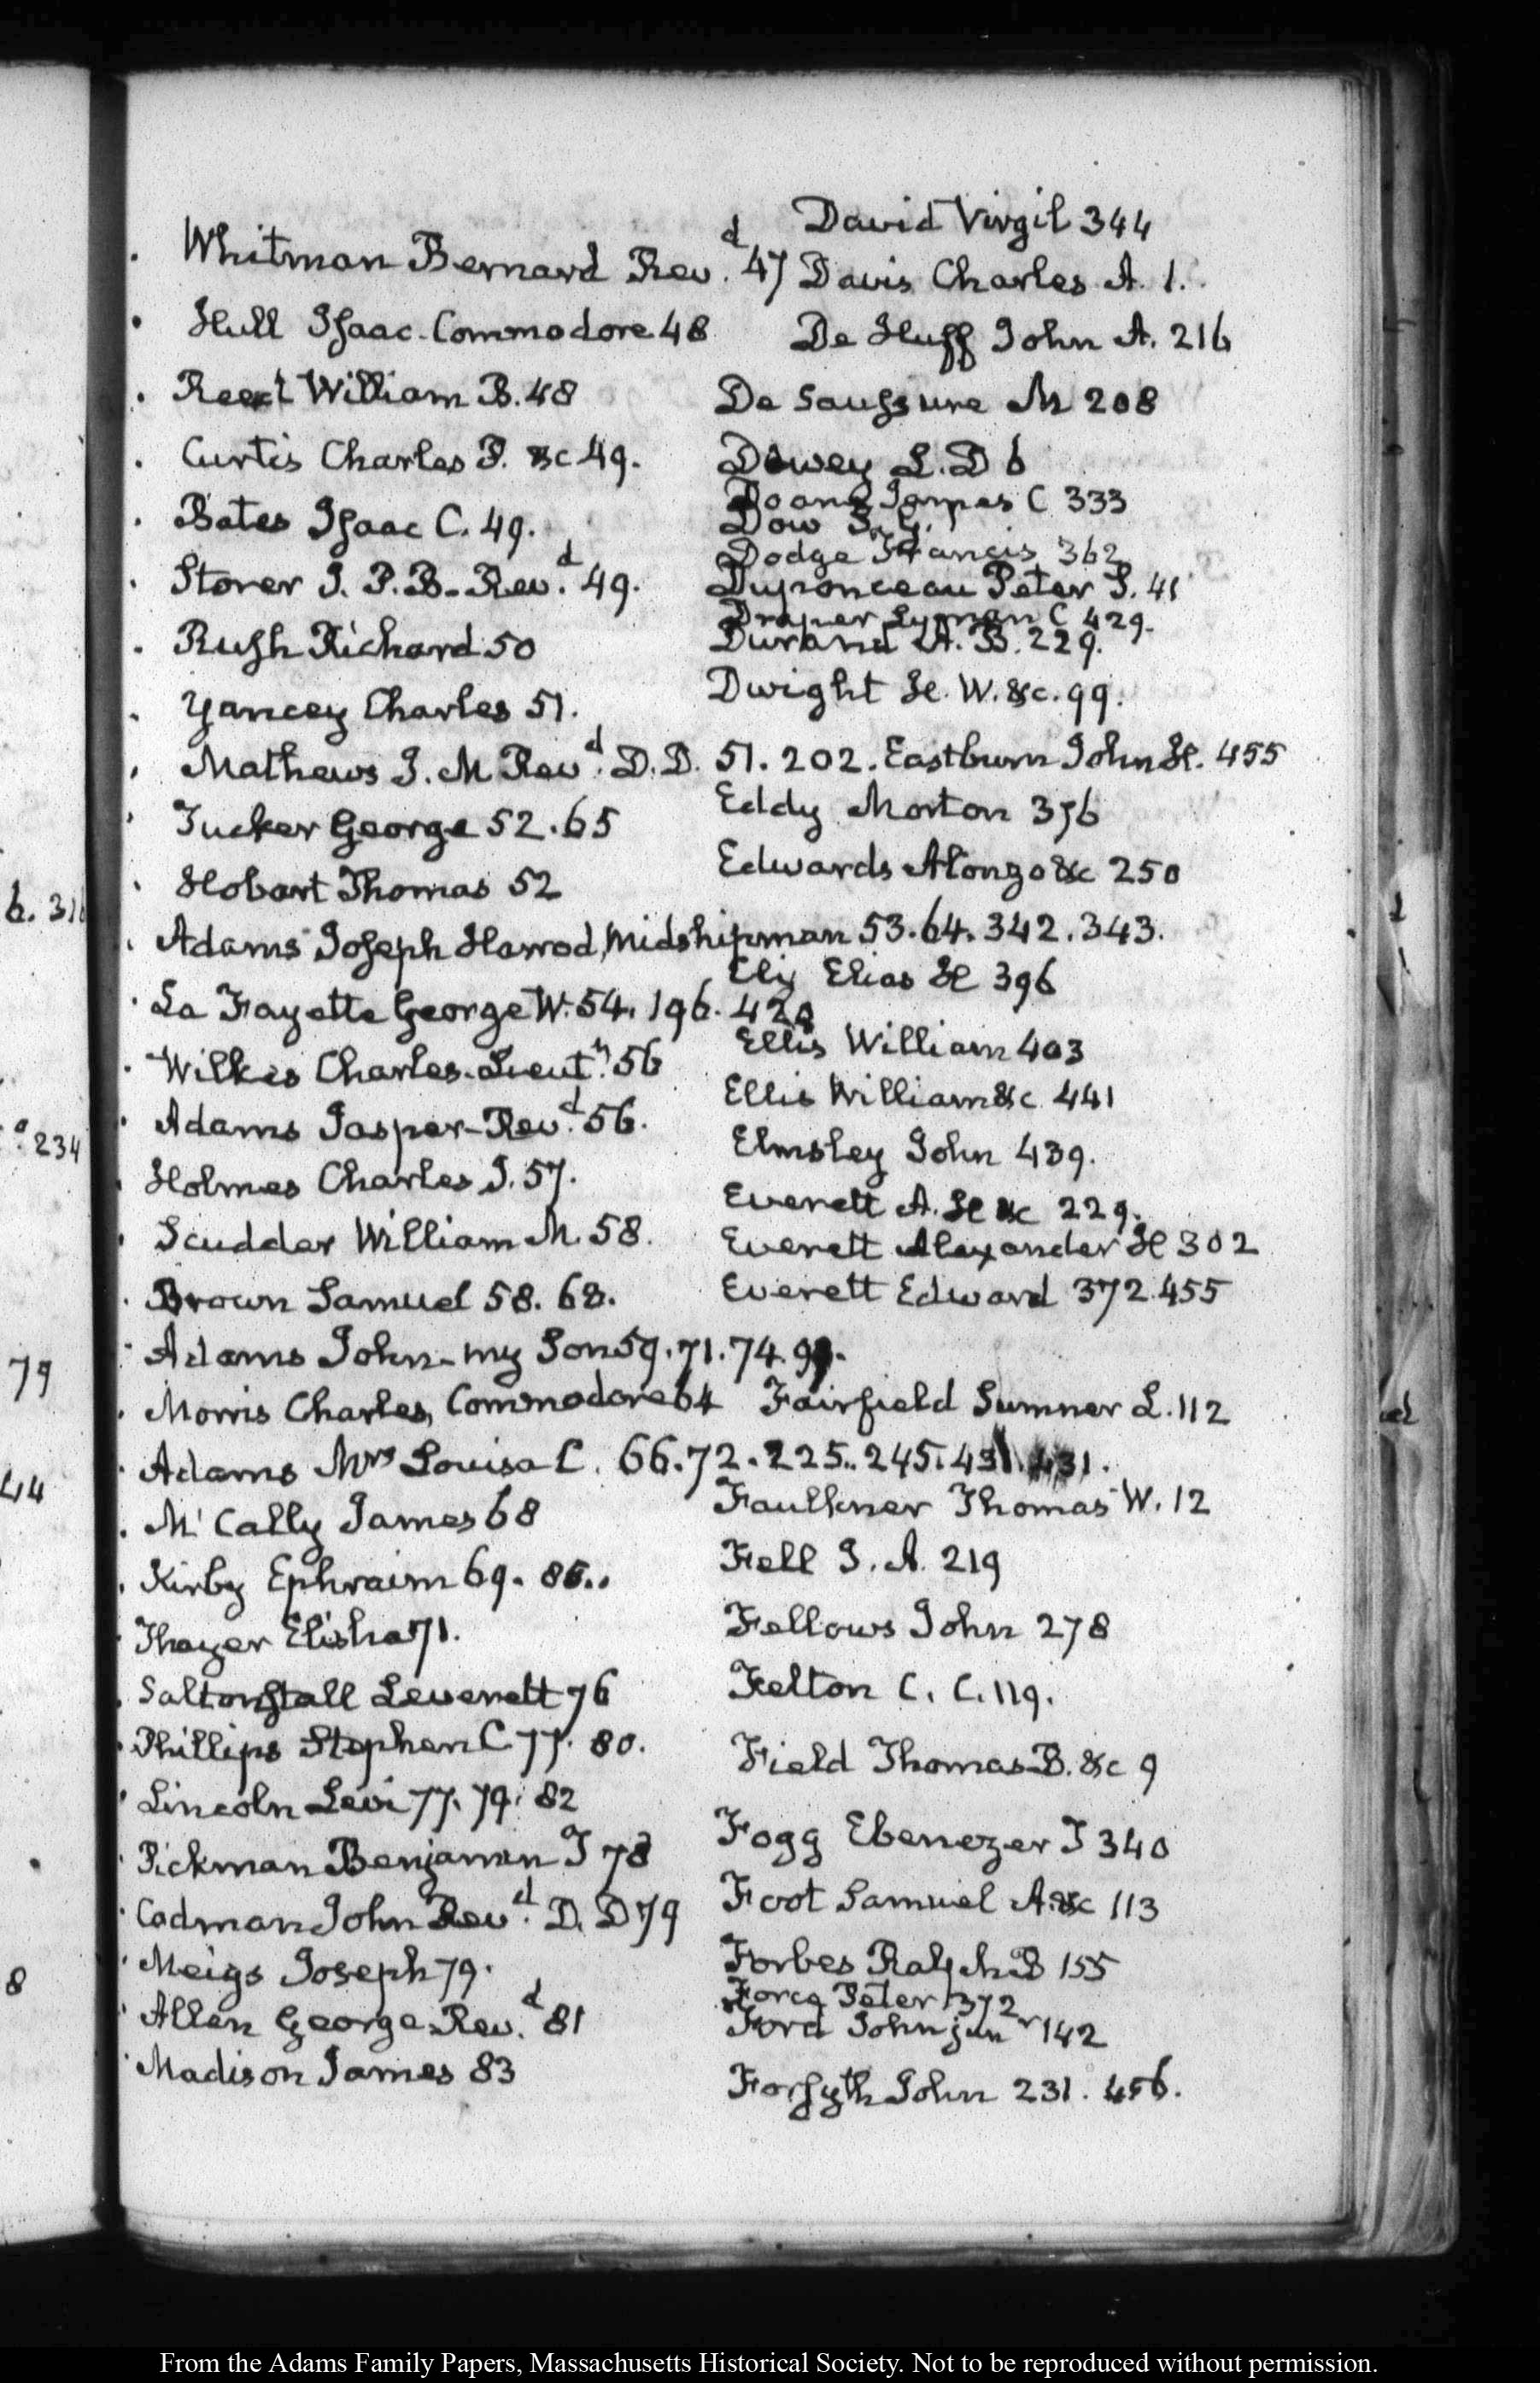 Whitman Bernard Rev.d 47
Hull Isaac. Commodore 48
Reed William B. 48
Curtis Charles P. &c 49.
Bates Isaac C. 49.
Storer J. P. B. - Rev.d 49.
Rush Richard 50
Yancey Charles 51.
Mathews J. M Rev.d D.D. 51. 202.
Tucker George 52. 65
Hobart Thomas 52
Adams Joseph Harrod, Midshipman 53. 64. 342. 343.
La Fayette George W. 54. 196. 428
Wilkes Charles. Lieut. 56
Adams Jasper - Rev.d 56.
Holmes Charles J. 57.
Scudder William M. 58.
Brown Samuel 58. 68.
Adams John - my Son 59. 71. 74.
Morris Charles, Commodore 64
Adams Mrs Louisa C. 66. 72. 225. 245. 431.
Mc Cally James 68
Kirby Ephraim 69. 86..
Thayer Elisha 71.
Saltonstall Leverett 76
Phillips Stephen C 77. 80.
Lincoln Levi 77. 79. 82
Pickman Benjamin T 78
Codman John Rev.d D. D 79
Meigs Joseph 79.
Allen George Rev.d 81
Madison James 83
David Virgil 344
Davis Charles A. 1.
De Huff John A. 216
De Saussure M 208
Dewey L. D 6
Doane James C 333
Dow
Dodge Francis 362
Duponceau Peter S. 41
Draper Lyman C 429.
Durand A. B. 229.
Dwight H. W. &c. 99.
Eastburn John H. 455
Eddy Morton 376
Edwards Alonzo &c 250
Ely Elias H 396
Ellis William 403
Ellis William &c. 441
Elmsley John 439.
Everett A. H &c 229.
Everett Alexander H 302
Everett Edward 372. 455
Fairfield Sumner L. 112
Faulkner Thomas W. 12
Fell J. A. 219
Fellows John 278
Felton C. C. 119.
Field Thomas B. &c 9
Fogg Ebenezer T 340
Foot Samuel A. &c 113
Forbes Ralph B 155
Force Peter 372
Ford John junr 142
Forsyth John 231. 456.
6. 316
234
79
44
8
From the Adams Family Papers, Massachusetts Historical Society. Not to be reproduced without permission.